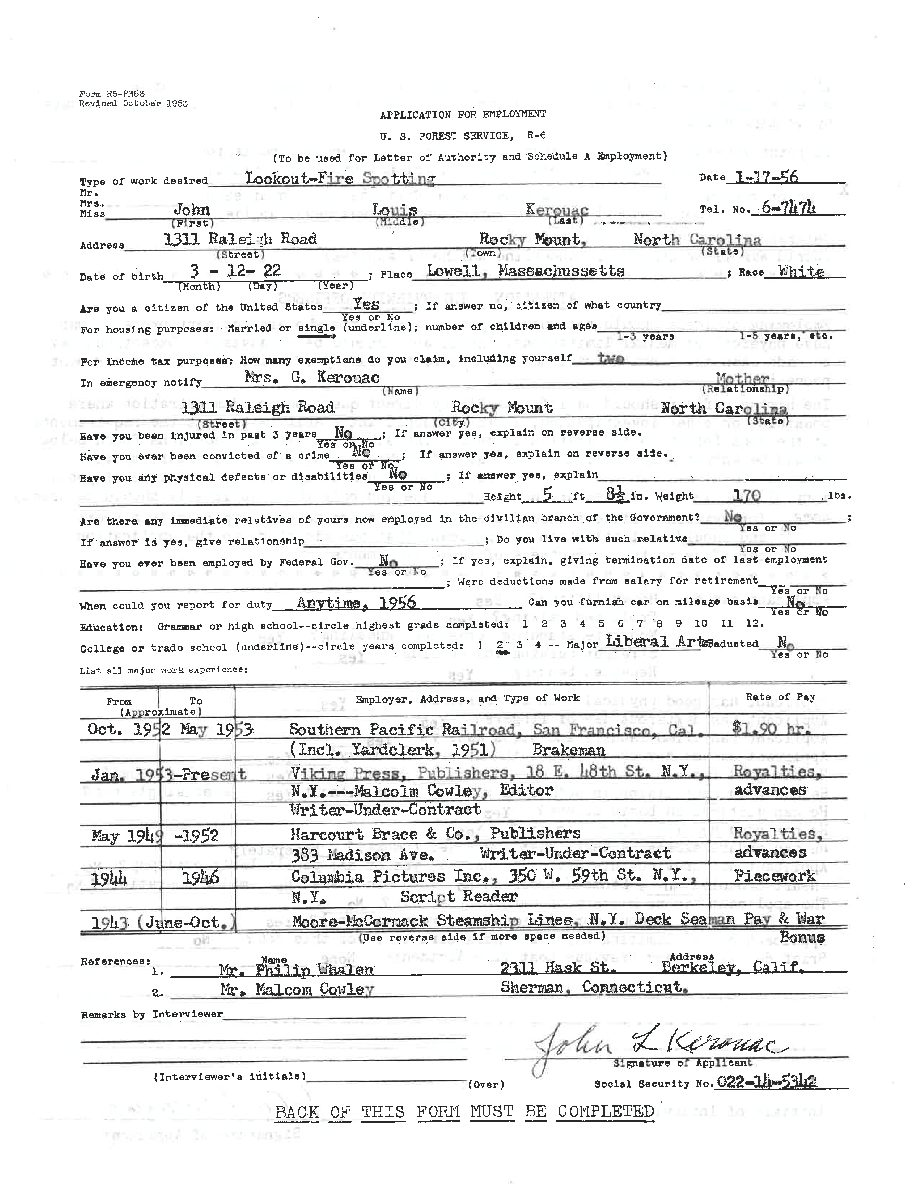 Form R5-PM68
Revised October 1953
APPLICATION FOR EMPLOYMENT
U. S. FOREST SERVICE, R-6
(To be used for Letter of Authority and Schedule A Employment)
Type of work desired Lookout-Fire Spotting Date 1-17-56
Mr.
Mrs.
Miss John Louis Kerouac Tel. No. 6-7474
(First) (Middle) (Last)
Address 1311 Raleigh Road Rocky Mount, North Carolina
(Street) (Town) (State)
Date of birth 3 - 12- 22 ; Place Lowell, Massachussetts ; Race White
(Month) (Day) (Year)
Are you a citizen of the United States Yes ; If answer no, citizen of what country
Yes or No
For housing purposes: Married or single (underline); number of children and ages
1-3 years 1-5 years, etc.
For income tax purposes: How many exemptions do you claim, including yourself two
In emergency notify Mrs. G. Kerouac Mother
(Name) (Relationship)
1311 Raleigh Road Rocky Mount North Carolina
(Street) (City) (State)
Have you been injured in past 3 years No ; If answer yes, explain on reverse side.
Yes or No
Have you ever been convicted of a crime No ; If answer yes, explain on reverse side.
Yes or No
Have you any physical defects or disabilities No ; If answer yes, explain
Yes or No
Height 5 ft 8½ in. Weight 170 lbs.
Are there any immediate relatives of yours now employed in the civilian branch of the Government? No ;
Yes or No
If answer is yes, give relationship ; Do you live with such relative
Yes or No
Have you ever been employed by Federal Gov. No ; If yes, explain, giving termination date of last employment
Yes or No
; Were deductions made from salary for retirement
Yes or No
When could you report for duty Anytime, 1956 Can you furnish car on mileage basis No
Yes or No
Education: Grammar or high school--circle highest grade completed: 1 2 3 4 5 6 7 8 9 10 11 12.
College or trade school (underline)--circle years completed: 1 2 3 4 -- Major Liberal Arts Graduated No
Yes or No
List all major work experience:
From To Employer, Address, and Type of Work Rate of Pay
(Approximate)
Oct. 1952 May 1953 Southern Pacific Railroad, San Francisco, Cal. $1.90 hr.
(Incl. Yardclerk, 1951) Brakeman
Jan. 1953-Present Viking Press, Publishers, 18 E. 48th St. N.Y., Royalties,
N.Y.---Malcolm Cowley, Editor advances
Writer-Under-Contract
May 1949 -1952 Harcourt Brace & Co., Publishers Royalties,
383 Madison Ave. Writer-Under-Contract advances
1944 1946 Columbia Pictures Inc., 350 W. 59th St. N.Y., Piecework
N.Y. Script Reader
1943 (June-Oct.) Moore-McCormack Steamship Lines, N.Y. Deck Seaman Pay & War
(Use reverse side if more space needed) Bonus
References: Name Address
1. Mr. Philip Whalen 2311 Hask St. Berkeley, Calif.
2. Mr. Malcom Cowley Sherman, Connecticut.
Remarks by Interviewer
John L Kerouac
Signature of Applicant
(Interviewer's initials) (Over) Social Security No. 022-14-5342
BACK OF THIS FORM MUST BE COMPLETED